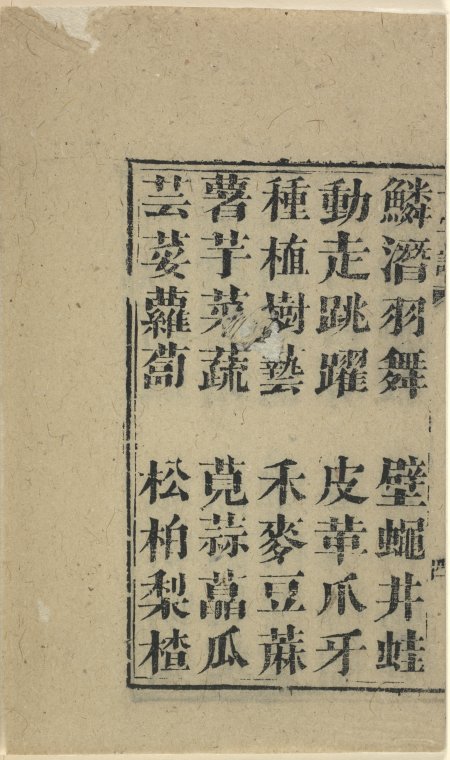 鱗潛羽舞 壁蠅井蛙
動走跳躍 皮革爪牙
種植樹藝 禾麥豆蔴
薯芋菜蔬 莧蒜萵瓜
芸荽蘿蔔 松柏梨楂